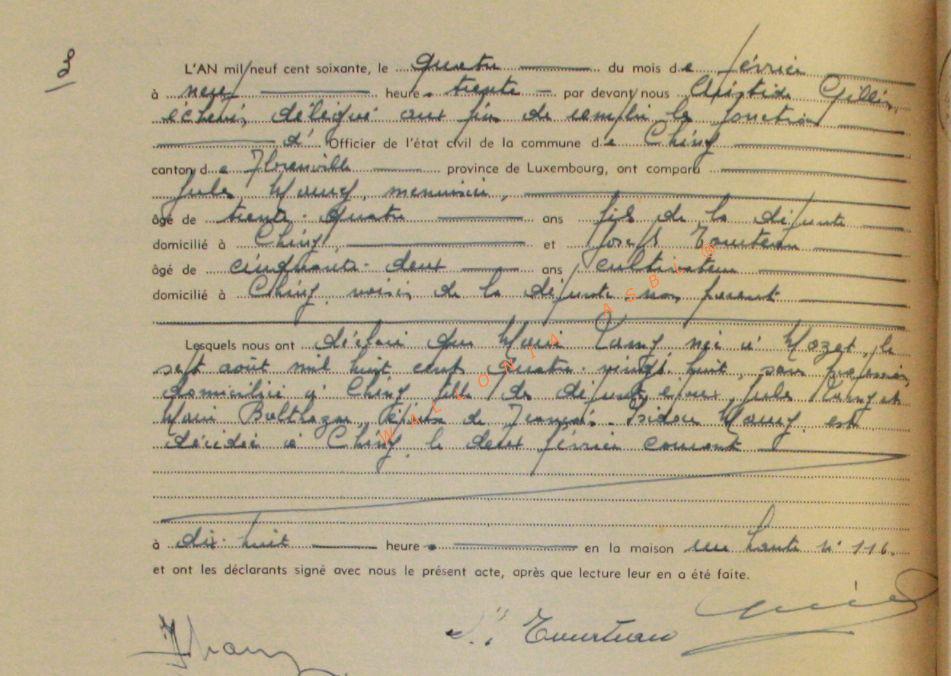 3
L'AN mil neuf cent soixante, le quatre du mois de février
à neuf heure s trente par devant nous Aristide Gillet,
échevin délégué aux fins de remplir les fonctions
d' Officier de l'état civil de la commune de Chiny
canton de Florenville province de Luxembourg, ont comparu
Jules Hamy, menuisier,
âgé de trente-quatre ans fils de la défunte
domicilié à Chiny, et Joseph Tourteau
âgé de cinquante-deux ans cultivateur
domicilié à Chiny, voisin de la défunte non parent
Lesquels nous ont déclaré que Marie née à Mozet, le
sept août mil huit cent quatre-vingt huit, sans profession
domiciliée à Chiny fille des défunts époux Jules et
Marie Balthazar, épouse de Isidore Hamy, est
décédée à Chiny, le deux février courant
à dix-huit heure s en la maison rue haute n° 116.
et ont les déclarants signé avec nous le présent acte, après que lecture leur en a été faite.
JHamy
Tourteau
WALLONIA ASBL ©